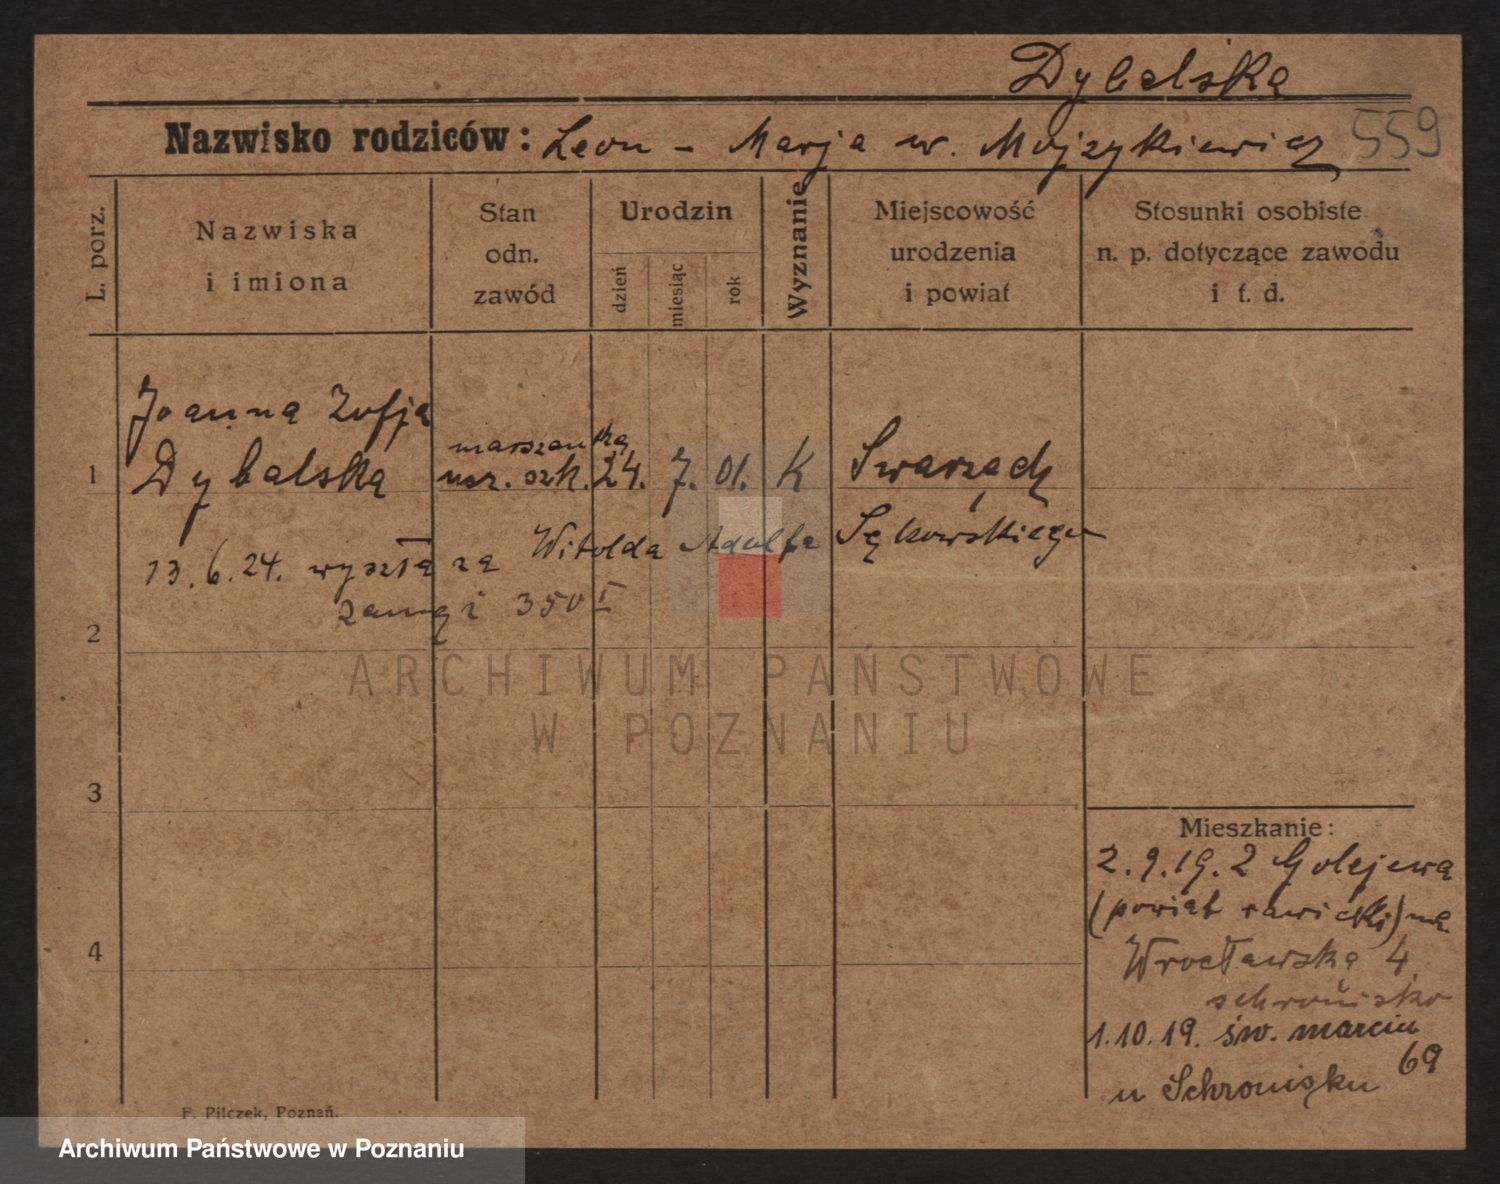 Dybalska
Nazwisko rodziców: Leon - Marja w. Mojzykiewicz 559
L. porz.
Nazwiska
i imiona
Stan
odn.
zawód
Urodzin
dzień
miesiąc
rok
Wyznanie
Miejscowość
urodzenia
i powiat
Stosunki osobiste
n. p. dotyczące zawodu
i t. d.
Joanna Zofja
1 Dybalska
ucz. szk. 24. 7. 01. K Swarzędz
13.6.24. wyszła za Witolda Adolfa Sękowskiego
350 I
2
ARCHIWUM PAŃSTWOWE
W POZNANIU
3
4
Mieszkanie:
2.9.19. z Golejewa
(powiat rawicki) na
Wrocławska 4
schronisko
1.10.19. św. marcin
69
u Schronisku
F. Pilczek, Poznań.
Archiwum Państwowe w Poznaniu